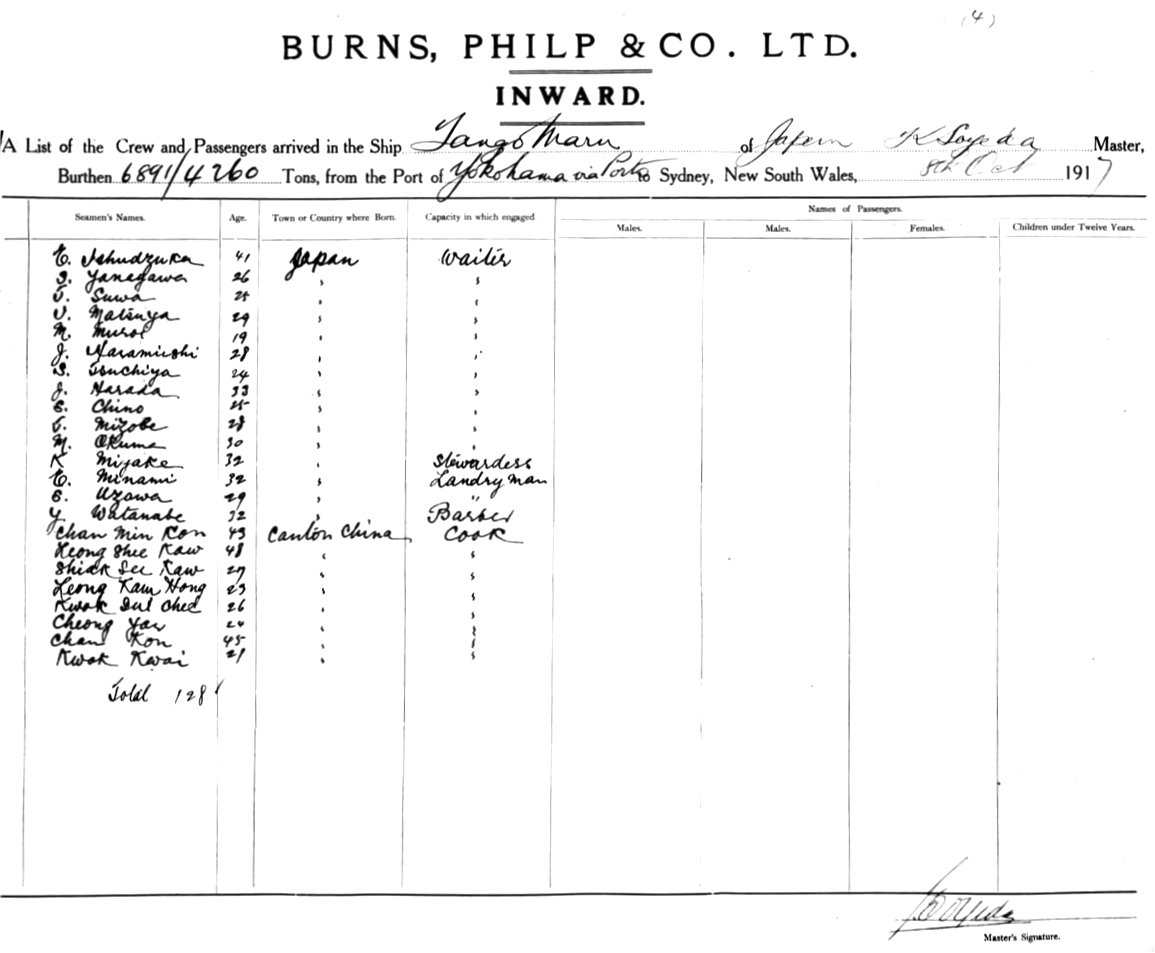 (4)
BURNS, PHILP & CO. LTD.
INWARD.
A List of the Crew and Passengers arrived in the Ship Tango Maru of Japan K Soyeda Master,
Burthen 6891/4260 Tons, from the Port of Yokohama via Ports to Sydney, New South Wales, 8th Oct 1917
Names of Passengers.
Seamen's Names. Age. Town or Country where Born. Capacity in which engaged Males. Males. Females. Children under Twelve Years.
41 Japan Waiter
Yanagawa 26 " "
Suwa 25 " "
Matsuya 29 " "
M. Muroi 19 " "
J. 28 " "
S. Tsuchiya 24 " "
J. Harada 33 " "
S. Chino 25 " "
Mizobe 28 " "
M. Okuma 30 " "
K Miyake 32 " Stewardess
Minami 32 " Landry man
S. Uzawa 29 " "
Y. Watanabe 32 " Barber
Chan Min Kon 43 Canton China Cook
Leong Shee Kaw 48 " "
Shiak See Kaw 27 " "
Leong Kam Hong 23 " "
Kwok Sui Ched 26 " "
Cheong Yau 24 " "
Chan Kon 45 " "
Kwok Kwai 21 " "
Total 128
Soyeda
Master's Signature.